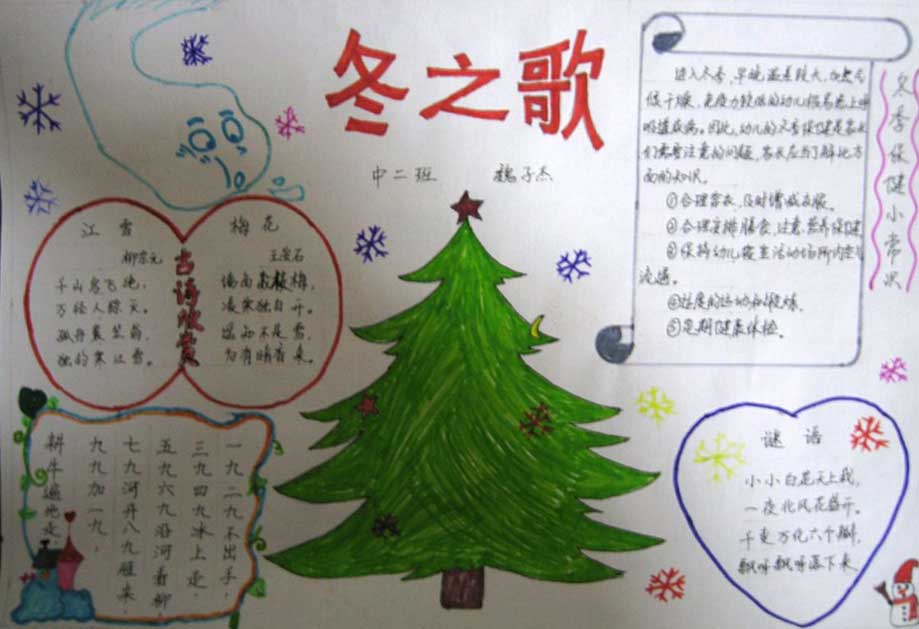 冬之歌
中二班 魏子杰
古诗欣赏
江雪
柳宗元
千山鸟飞绝，
万径人踪灭。
孤舟蓑笠翁，
独钓寒江雪。
梅花
王安石
墙角数枝梅，
凌寒独自开。
遥知不是雪，
为有暗香来。
冬季保健小常识
进入冬季，早晚温差较大，加空气
低干燥，免疫力较低的幼儿极易患上呼
吸道疾病。因此，幼儿的冬季保健是家长
们需要注意的问题，家长应当了解此方
面的知识。
①合理穿衣，及时增减衣服。
②合理安排膳食，注意营养保健
③保持幼儿寝室活动场所内空气
流通。
④适度的运动和锻炼。
⑤定期健康体检。
一九二九不出手，
三九四九冰上走，
五九六九沿河看柳，
七九河开八九雁来，
九九加一九，
耕牛遍地走
谜语
小小白花天上栽，
一夜北风花盛开。
千变万化六个瓣，
飘呀飘呀落下来